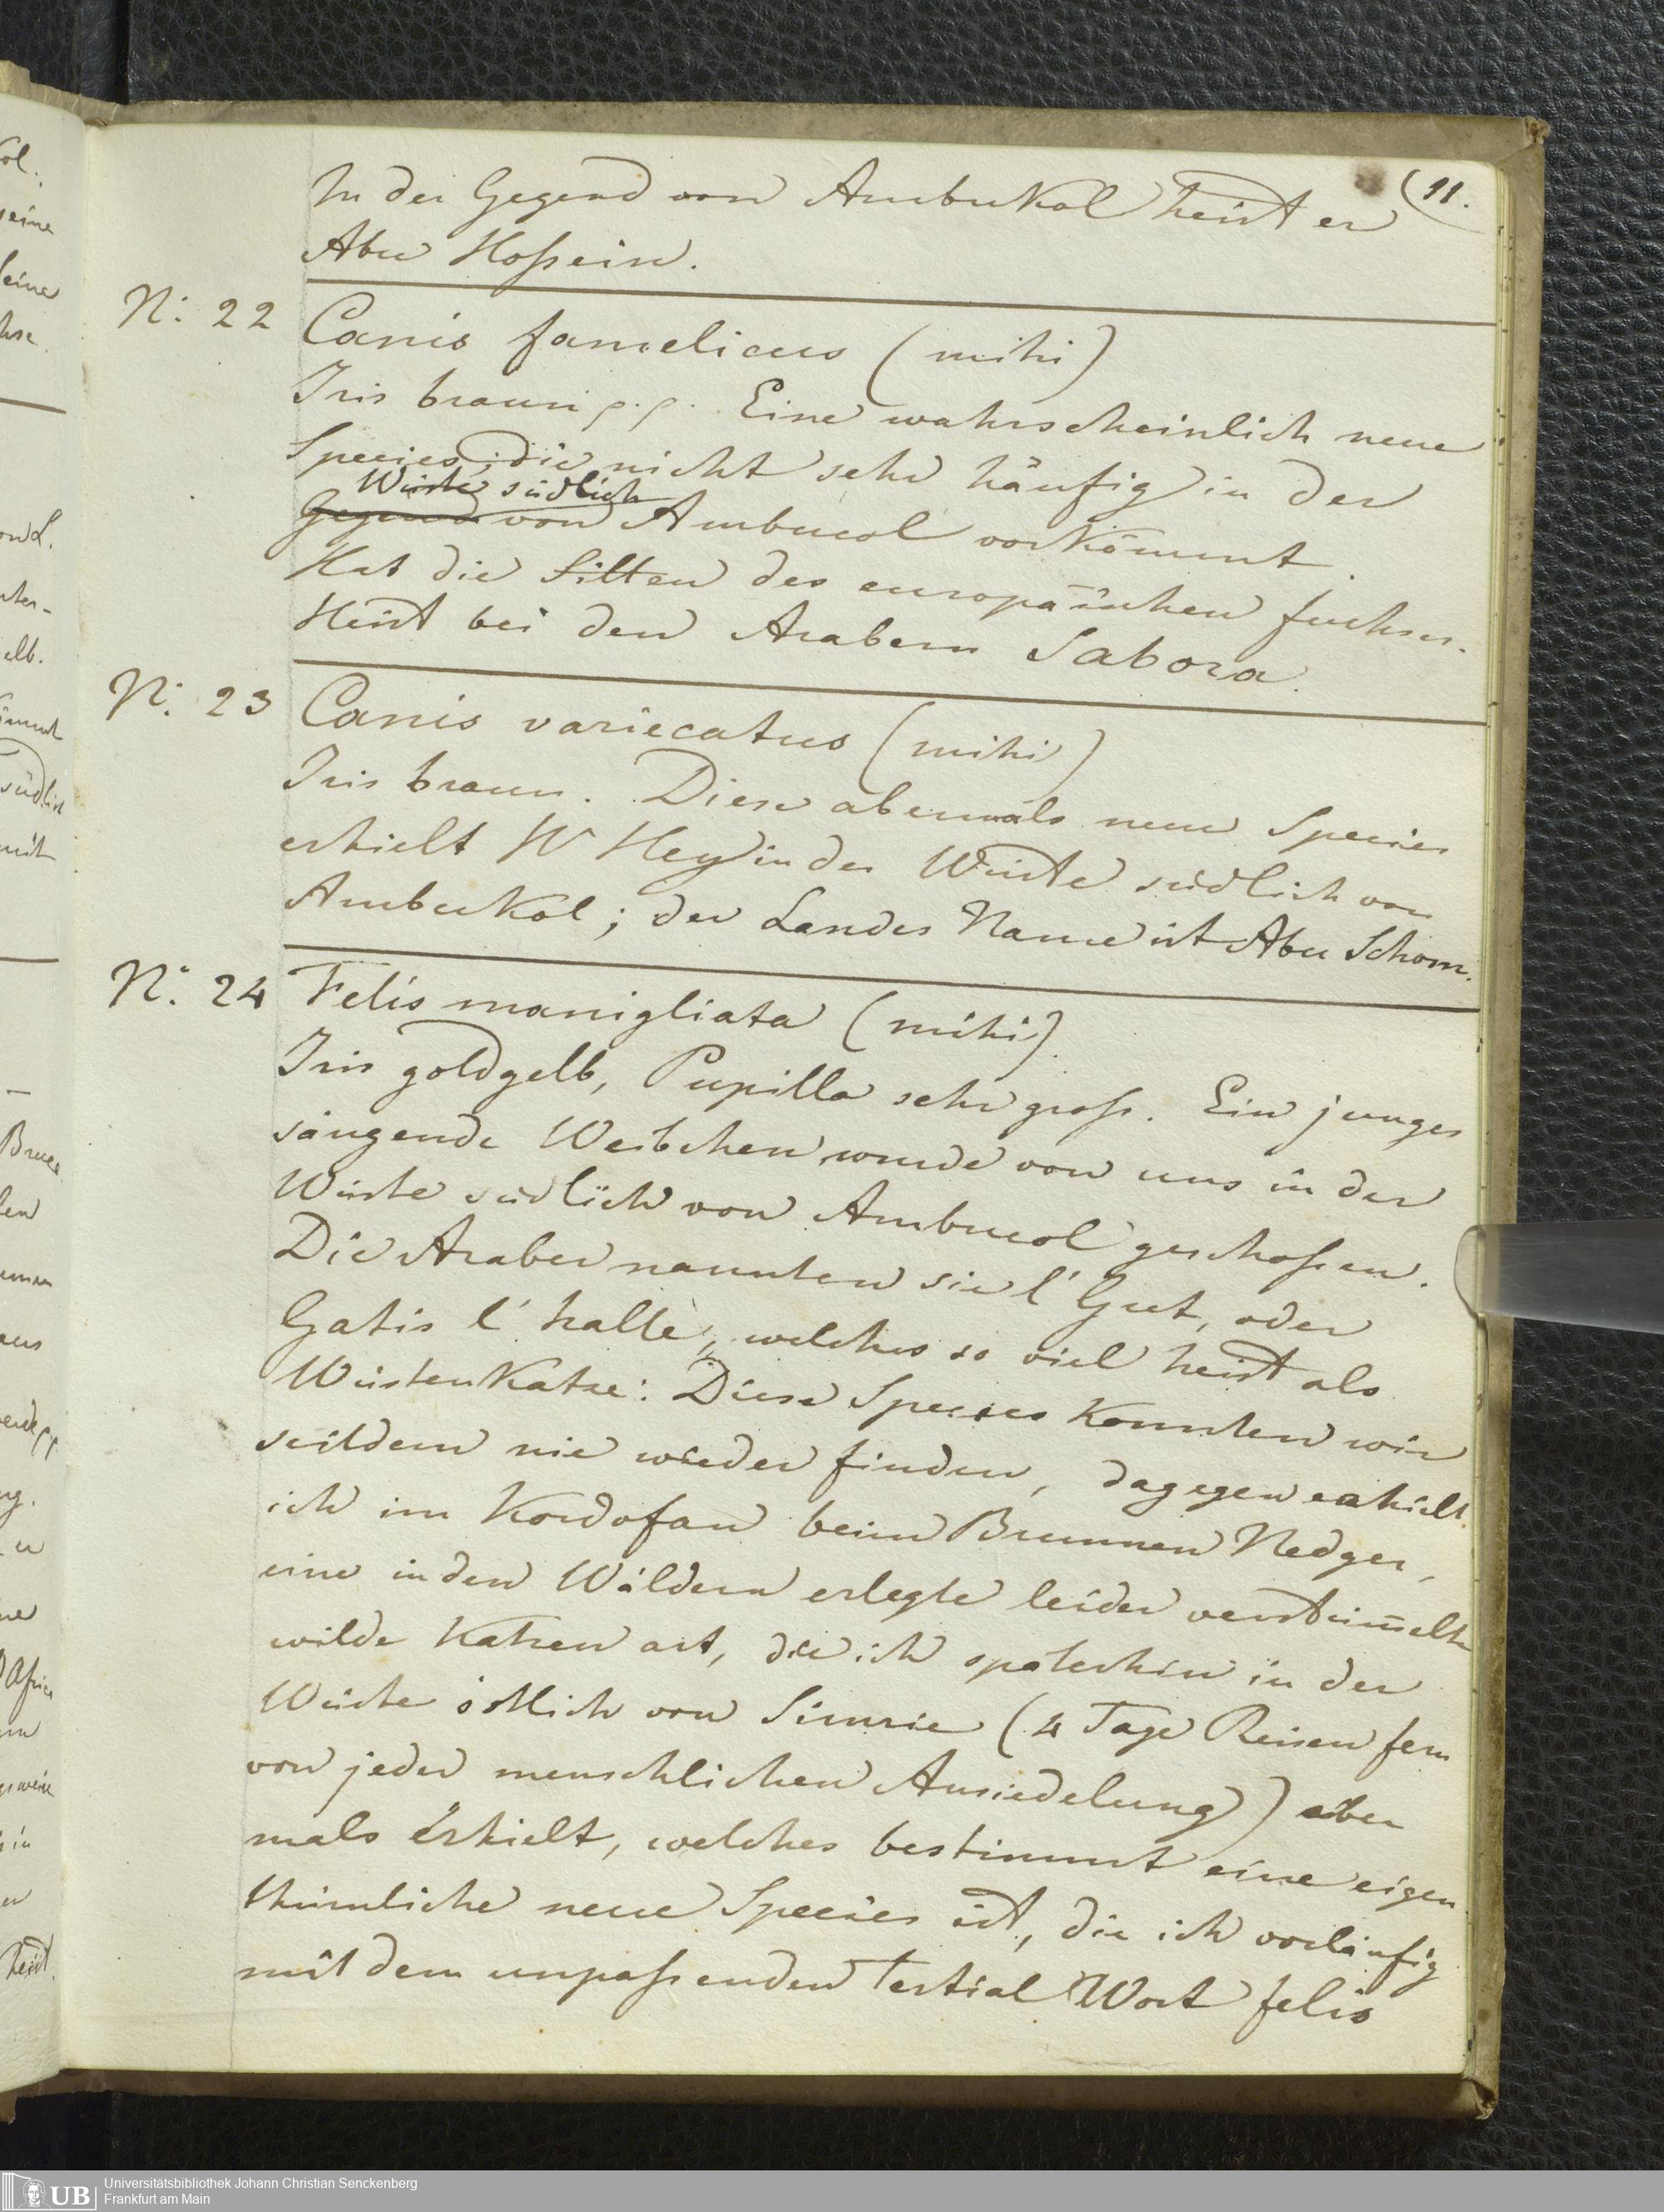 11.
In der Gegend von Ambukol heist er
Abu Hossein.
N: 22 Canis famelicus (mihi)
Iris braun p.p. Eine wahrscheinlich neue
Species, die nicht sehr häufig in der
Wüste südlich
Gegend von Ambucol vorkömmt.
Hat die Sitten des europäischen fuchses.
Heist bei den Arabern Sabora.
N: 23 Canis variecatus (mihi)
Iris braun. Diese abermals neue Species
erhielt H Hey in der Wüste südlich von
Ambukol; der Landes Name ist Abu Schom.
N: 24 Felis manigliata (mihi).
Iris goldgelb, Pupilla sehr gross. Ein junges
säugende Weibchen wurde von uns in der
Wüste südlich von Ambucol geschossen.
Die Araber nannten sie l' Gut, oder
Gatis l' halle, welches so viel heist als
WüstenKatze: Diese Species konnten wir
seitdem nie wieder finden, dagegen erhielt
ich im Kordofan beim Brunnen Nedger,
eine in den Wäldern erlegte leider verstümelte
wilde Katzen art, die ich späterhin in der
Wüste östlich von Simrie (4 Tage Reisen fern
von jeder menschlichen Ansiedelung) aber
mals erhielt, welches bestimmt eine eigen
thümliche neue Species ist, die ich vorläufig
mit dem unpassenden Tertial Wort felis
UB Universitätsbibliothek Johann Christian Senckenberg
Frankfurt am Main